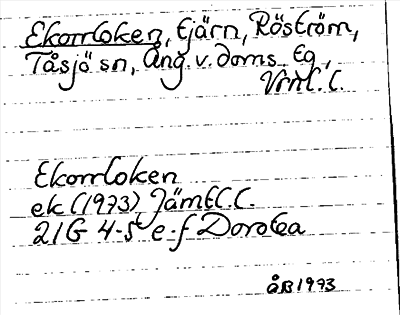 Ekorrloken, tjärn, Röström,
Tåsjö sn, Ång. v. doms. tg,
Vrnl. L.
Ekorrloken
ek (1973) Jämtl. L.
21G 4-5 e-f Dorotea
ÅB 1973